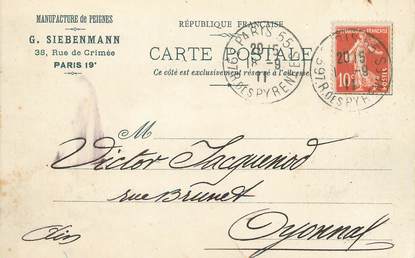 MANUFACTURE de PEIGNES
G. SIEBENMANN
38, Rue de Crimée
PARIS 19ᵉ
RÉPUBLIQUE FRANÇAISE
CARTE POSTALE
Ce côté est exclusivement réservé à l'adresse
PARIS 55
20 15
9
11
R. DES PYRENEES
10
POSTES
M
Victor Jacquenod
rue Brunet
Oyonnax
Ain